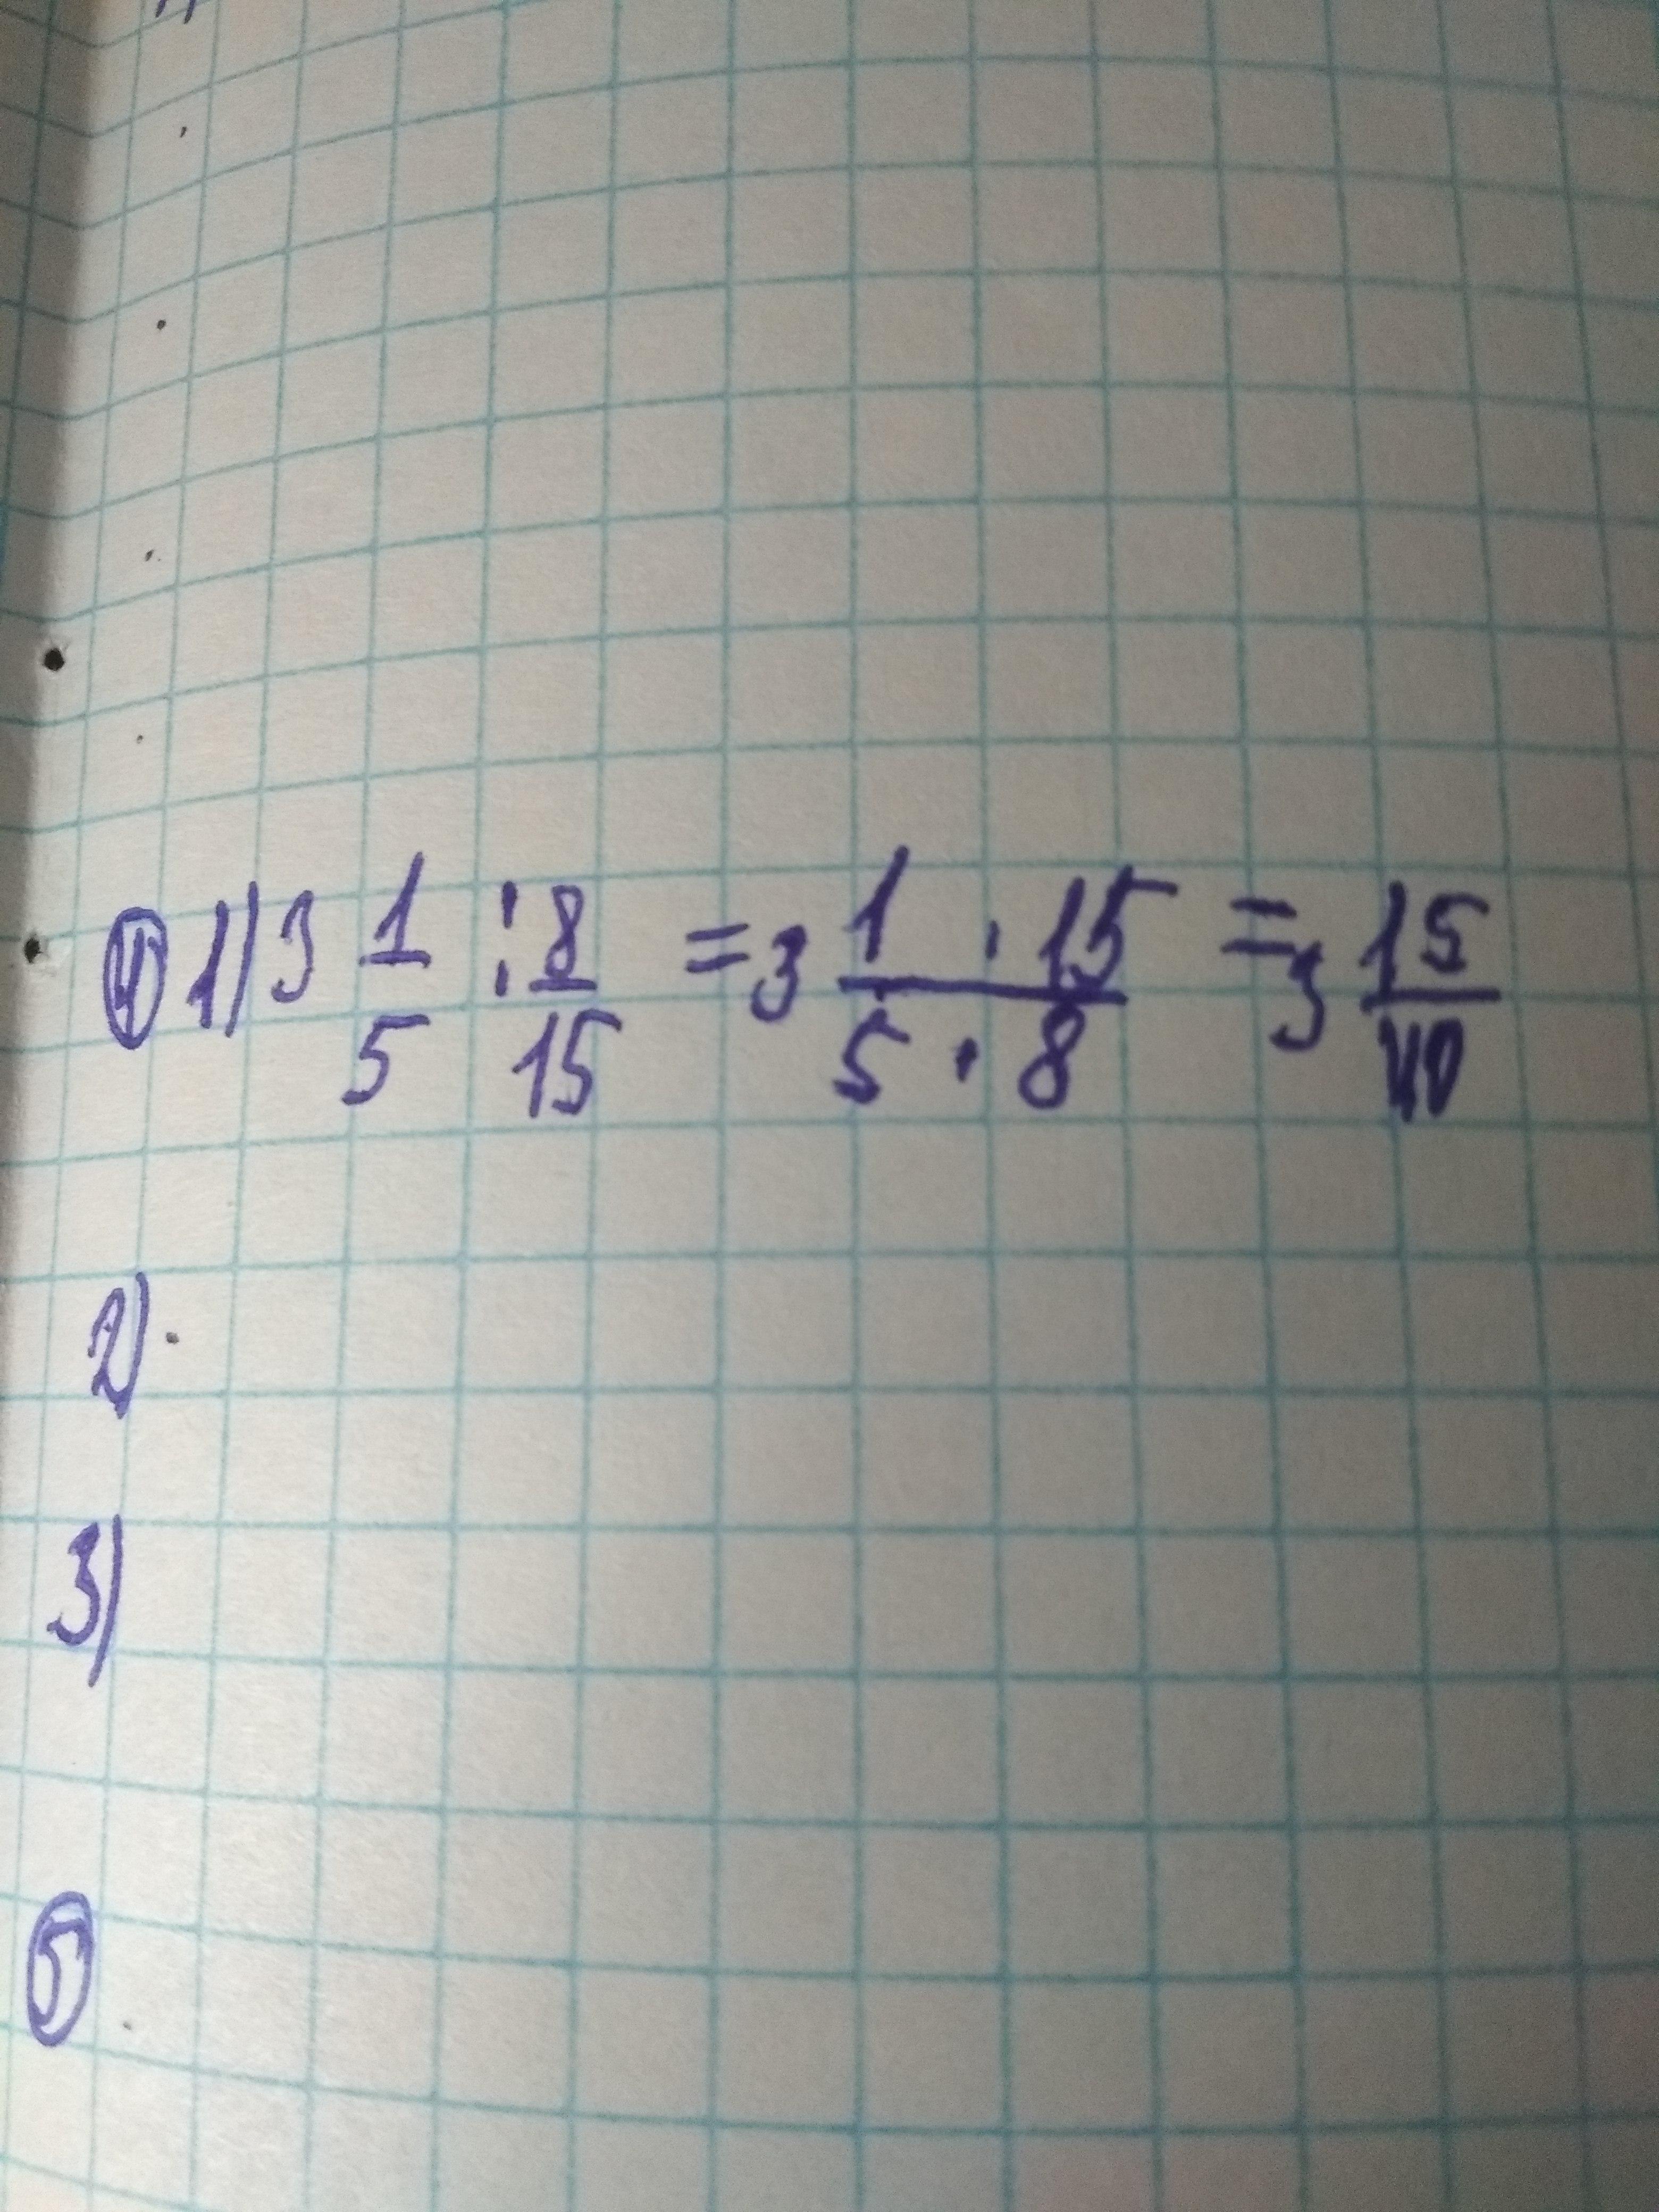 ④ 1) 3 1/5 : 8/15 = 3 (1 · 15)/(5 · 8) = 3 15/40
2)
3)
⑤